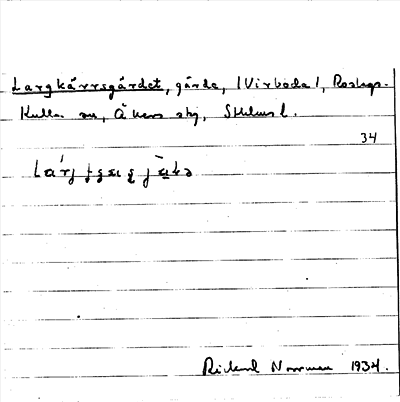 Largkärrsgärdet, gärde, (Virboda), Roslags-
Kulla sn, Åkers skg, Sthlms l.
34
Rickard Norrman 1934.